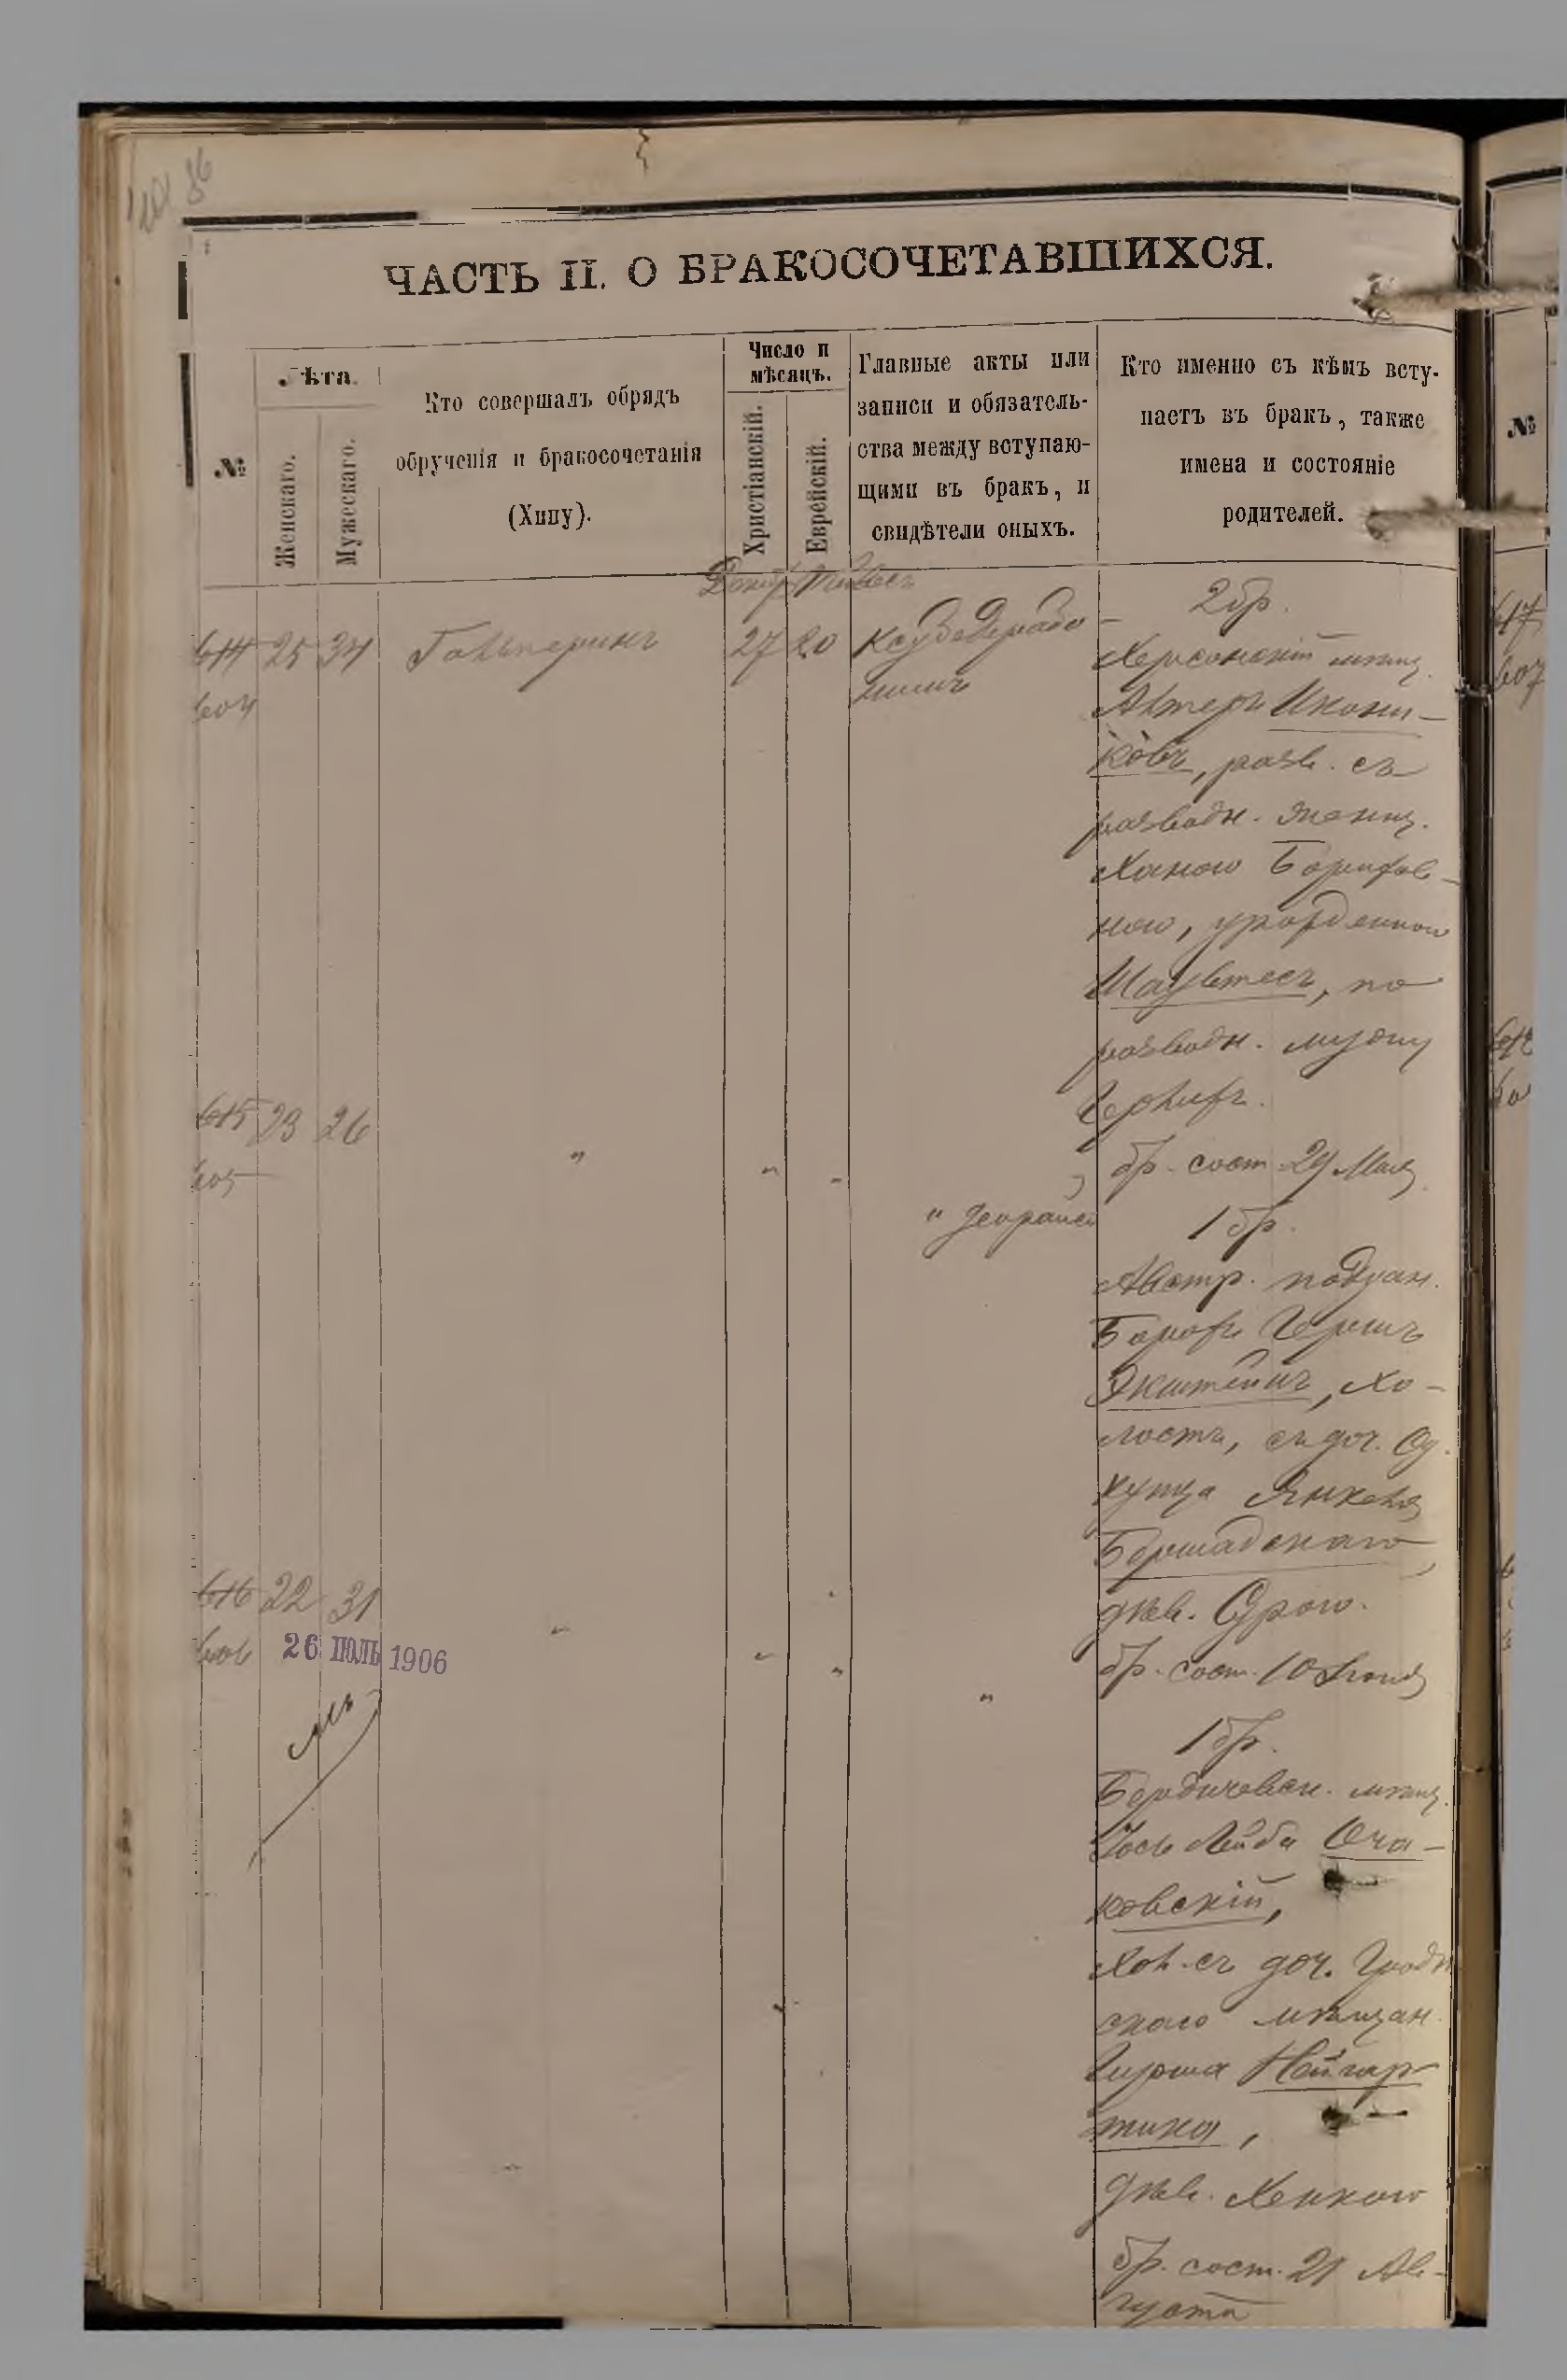 86
ЧАСТЬ II. О БРАКОСОЧЕТАВШИХСЯ.
№
Лѣта.
Женскаго.
Мужескаго.
Кто совершалъ обрядъ
обрученія и бракосочетанія
(Хипу).
Число и
мѣсяцъ.
Христіанскій.
Еврейскій.
Главные акты или
записи и обязатель-
ства между вступаю-
щими въ бракъ, и
свидѣтели оныхъ.
Кто именно съ кѣмъ всту-
паетъ въ бракъ, также
имена и состояніе
родителей.
№
Декаб. Тивесъ
614 25 34 Гальперинъ 27 20
604
2 бр.
Херсонскій мѣщ.
Алтеръ Икони-
ковъ, разв. съ
разводн. женщ.
Ханою Борухов-
ною, урожденною
по
разводн. мужу
бр. сост. 29 Мая
615 23 26 " " "
605
1 бр.
Австр. поддан.
Борохъ Гершъ
Экштейнъ, хо-
лостъ, съ доч. Од.
купца Янкеля
Бершадскаго,
дѣв. Сурою.
бр. сост. 10 Іюня
616 22 31 " " " "
606
26 ІЮЛЬ 1906
1 бр.
Бердичевск. мѣщ.
Іось Лейба Оча-
ковскій,
Хол. съ доч. Гродн
скаго мѣщан.
Гирша Нейгар-
тина,
дѣв. Хенкою
бр. сост. 21 Ав-
густа
617
607